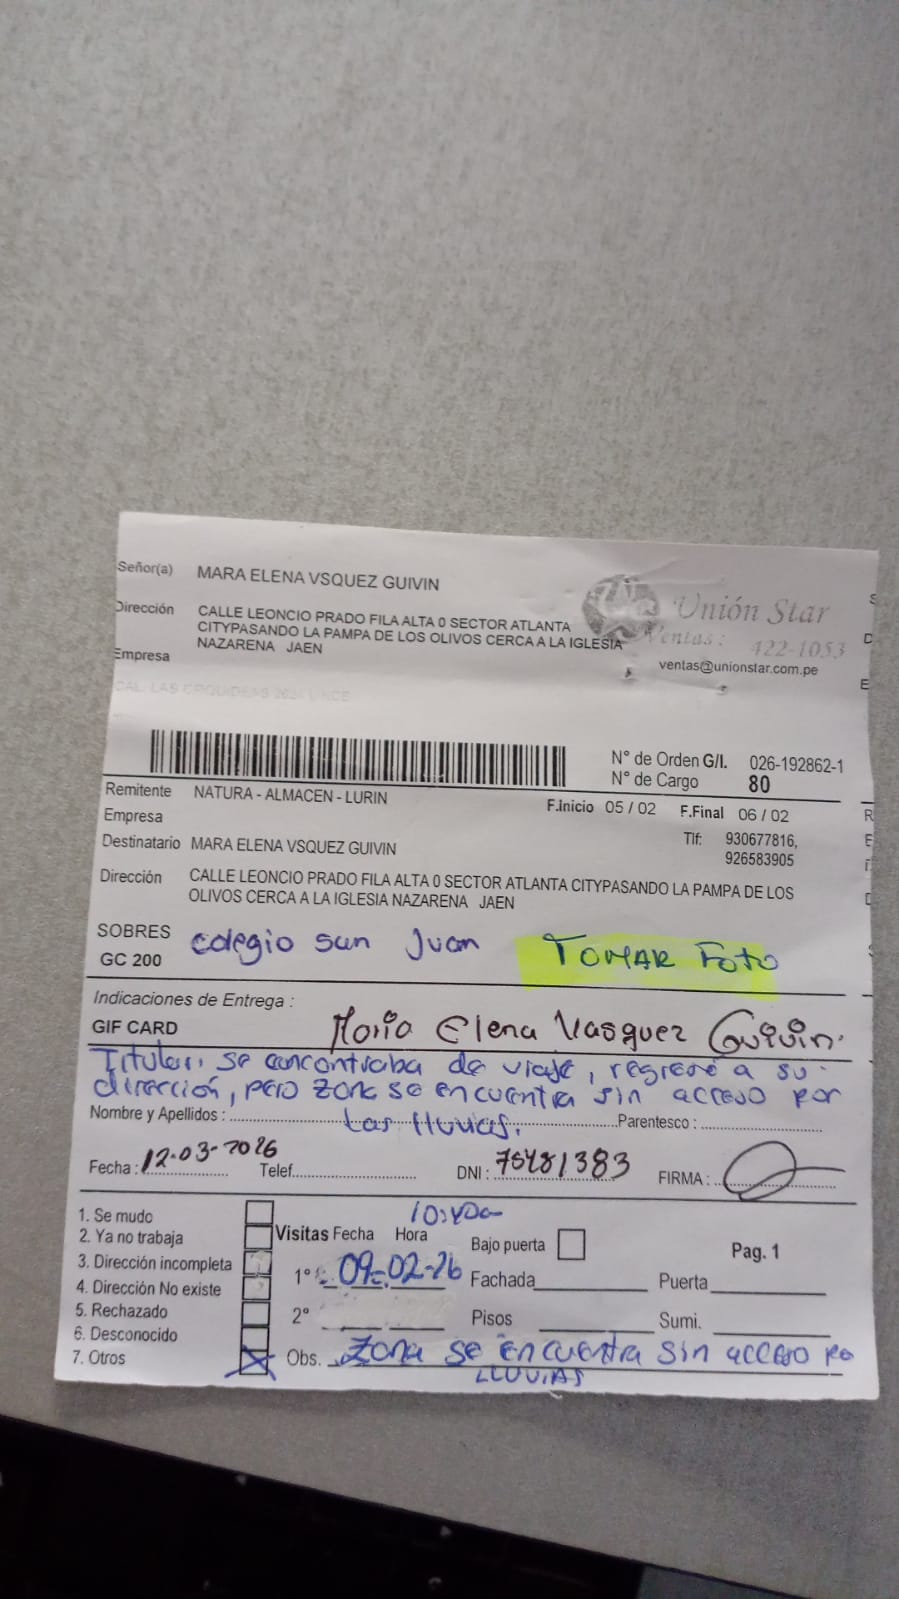 Señor(a) MARA ELENA VSQUEZ GUIVIN
Dirección CALLE LEONCIO PRADO FILA ALTA 0 SECTOR ATLANTA
CITYPASANDO LA PAMPA DE LOS OLIVOS CERCA A LA IGLESIA
NAZARENA JAEN
Empresa
Unión Star
Ventas: 422-1053
ventas@unionstar.com.pe
S
D
E
CAL. LAS ORQUIDEAS
N° de Orden G/I. 026-192862-1
N° de Cargo 80
Remitente NATURA - ALMACEN - LURIN
F.Inicio 05 / 02 F.Final 06 / 02
R
Empresa
Tlf: 930677816,
926583905
E
Destinatario MARA ELENA VSQUEZ GUIVIN
Dirección CALLE LEONCIO PRADO FILA ALTA 0 SECTOR ATLANTA CITYPASANDO LA PAMPA DE LOS
OLIVOS CERCA A LA IGLESIA NAZARENA JAEN
SOBRES colegio san Juan TOMAR FOTO
GC 200
Indicaciones de Entrega :
GIF CARD Maria Elena Vasquez Guivin.
Titular, se encontraba de viaje, regresó a su
dirección, pero zona se encuentra sin acceso por
Las lluvias.
Nombre y Apellidos : Parentesco :
Fecha : 12-03-2026 Telef. DNI : 75481383 FIRMA :
1. Se mudo
2. Ya no trabaja
3. Dirección incompleta
4. Dirección No existe
5. Rechazado
6. Desconocido
7. Otros
Visitas Fecha Hora
1° 09-02-26
2°
Bajo puerta
Pag. 1
Fachada Puerta
Pisos Sumi.
Obs. Zona se encuentra sin acceso po
LLUVIAS